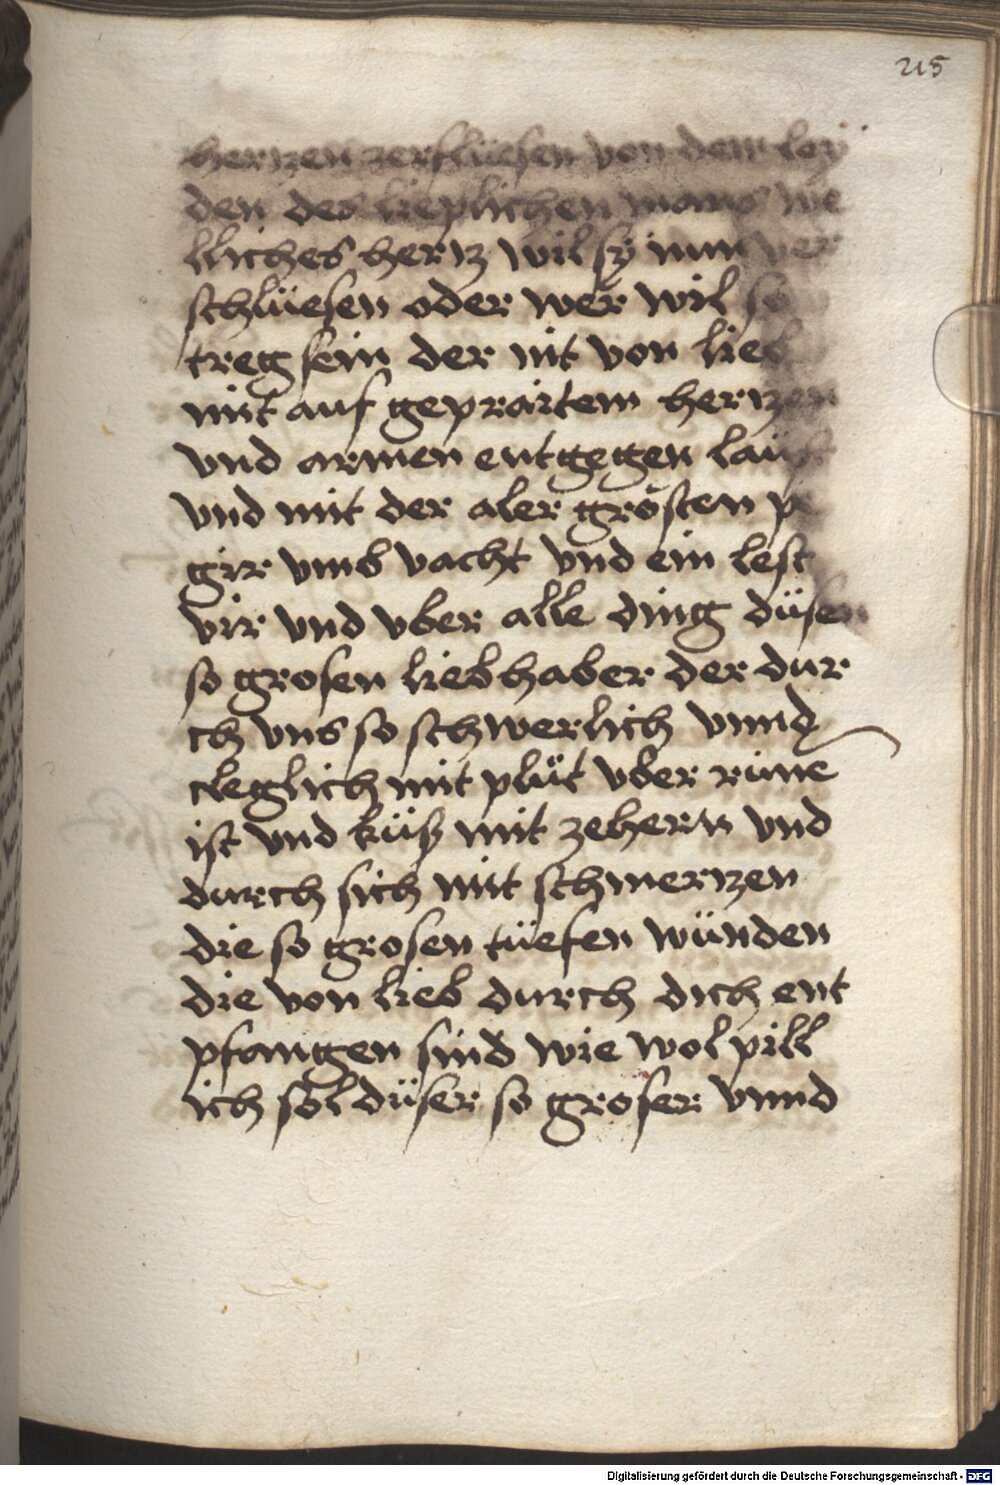 215
hertzen zerflüesen von dem ley
den des lieplichen mans we
lliches hertz wil sÿ nun ver
schlüesen oder wer wil so
treg sein der nit von lieb
mit auf gepraitem hertzen
vnd armen entgegen lauf
vnd mit der aler grösten pe
girr vmb vacht vnd ein lest
vir vnd vber alle ding düsen
so grosen liebhaber der dur
ch vns so schwerlich vnnd
cleglich mit plüt vber rüne
ist vnd küss mit zehern vnd
durch sich mit schmertzen
die so grosen tüefen wünden
die von lieb durch dich ent
pfangen sind wie wol pill
ich sol düser so groser vnnd
Digitalisierung gefördert durch die Deutsche Forschungsgemeinschaft - DFG